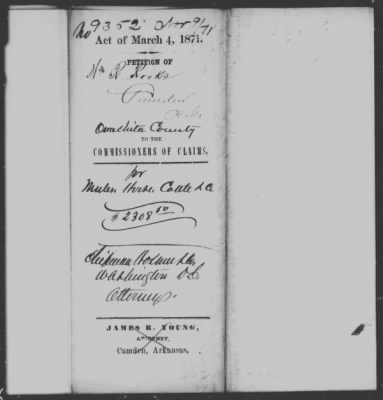 No 9352 Nov 9/71
Act of March 4, 1871.
PETITION OF
Wm R. Rooks
Camden
Ouachita County
TO THE
COMMISSIONERS OF CLAIMS.
for
Mules Horse Cattle &c
$2308 50
Washington D.C.
Attorneys.
JAMES R. YOUNG,
ATTORNEY,
Camden, Arkansas.